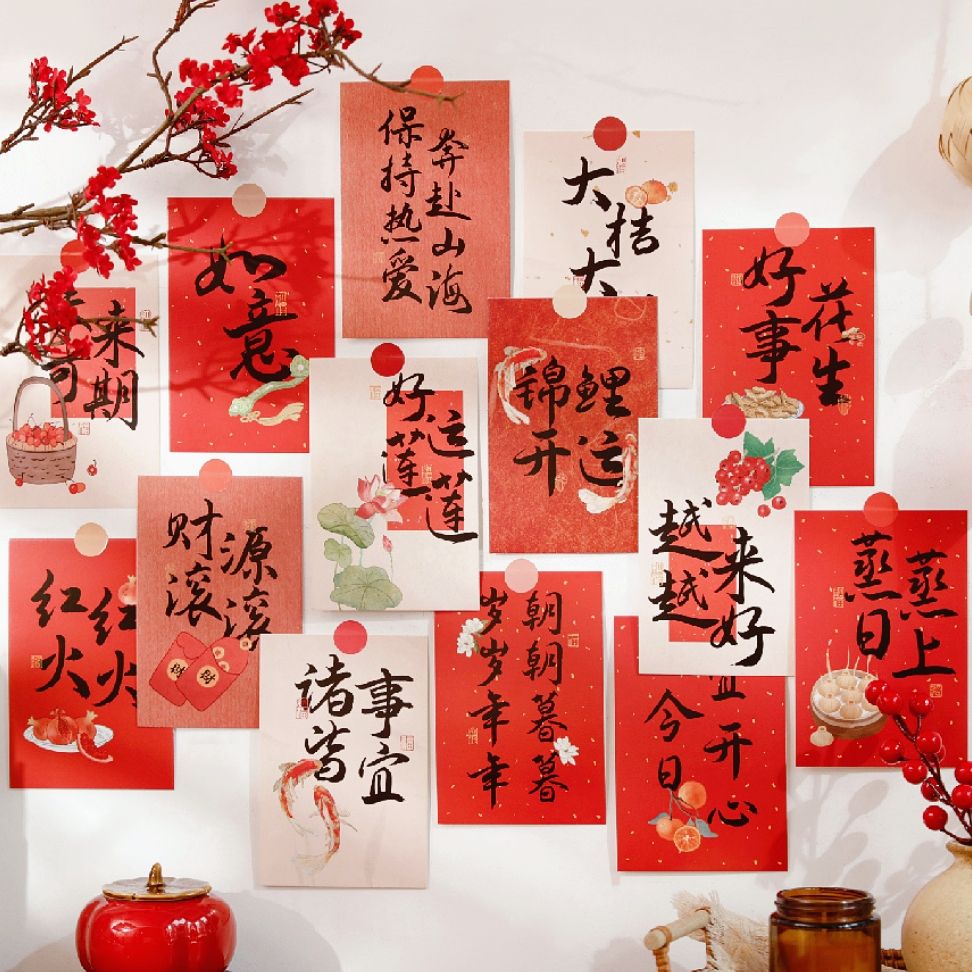 保持热爱
奔赴山海
大桔
大
如意
来
可期
好事
花生
好运
莲莲
锦鲤
开运
越来
越好
蒸蒸
日上
财源
滚滚
红红
火火
诸事
皆宜
岁岁年年
朝朝暮暮
今日
宜开心